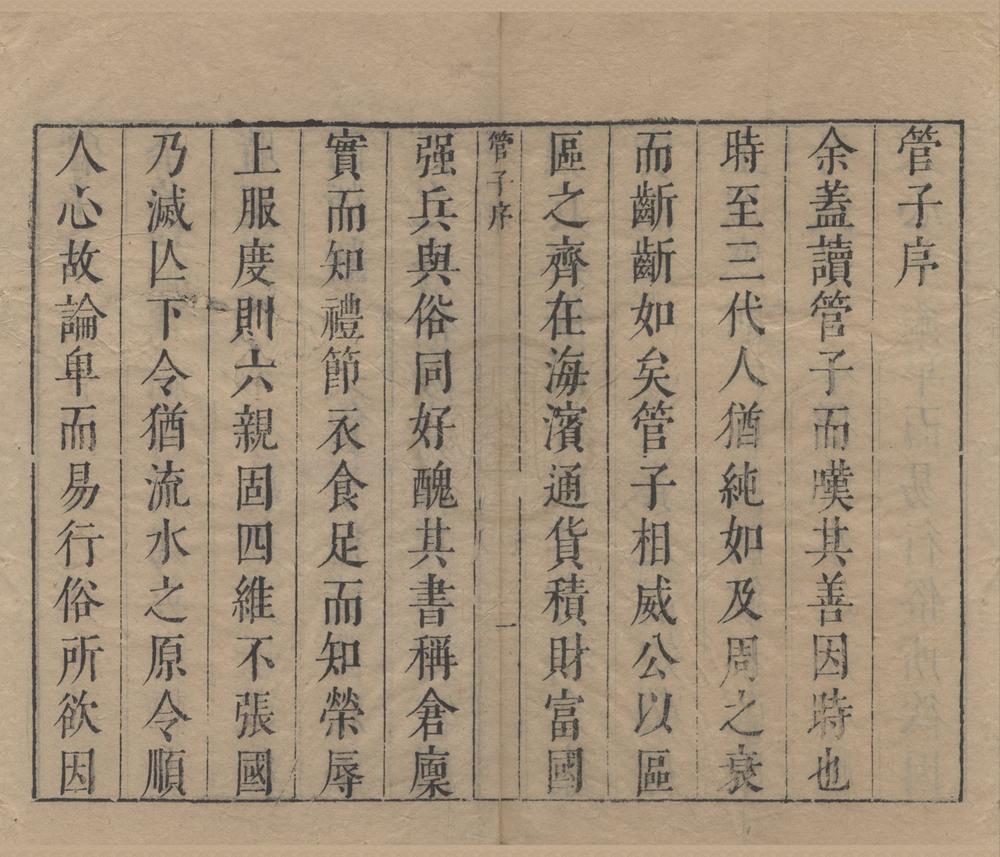 管子序
余蓋讀管子而嘆其善因時也
時至三代人猶純如及周之衰
而齗齗如矣管子相威公以區
區之齊在海濱通貨積財富國
管子序 一
强兵與俗同好醜其書稱倉廩
實而知禮節衣食足而知榮辱
上服度則六親固四維不張國
乃滅亾下令猶流水之原令順
人心故論卑而易行俗所欲因